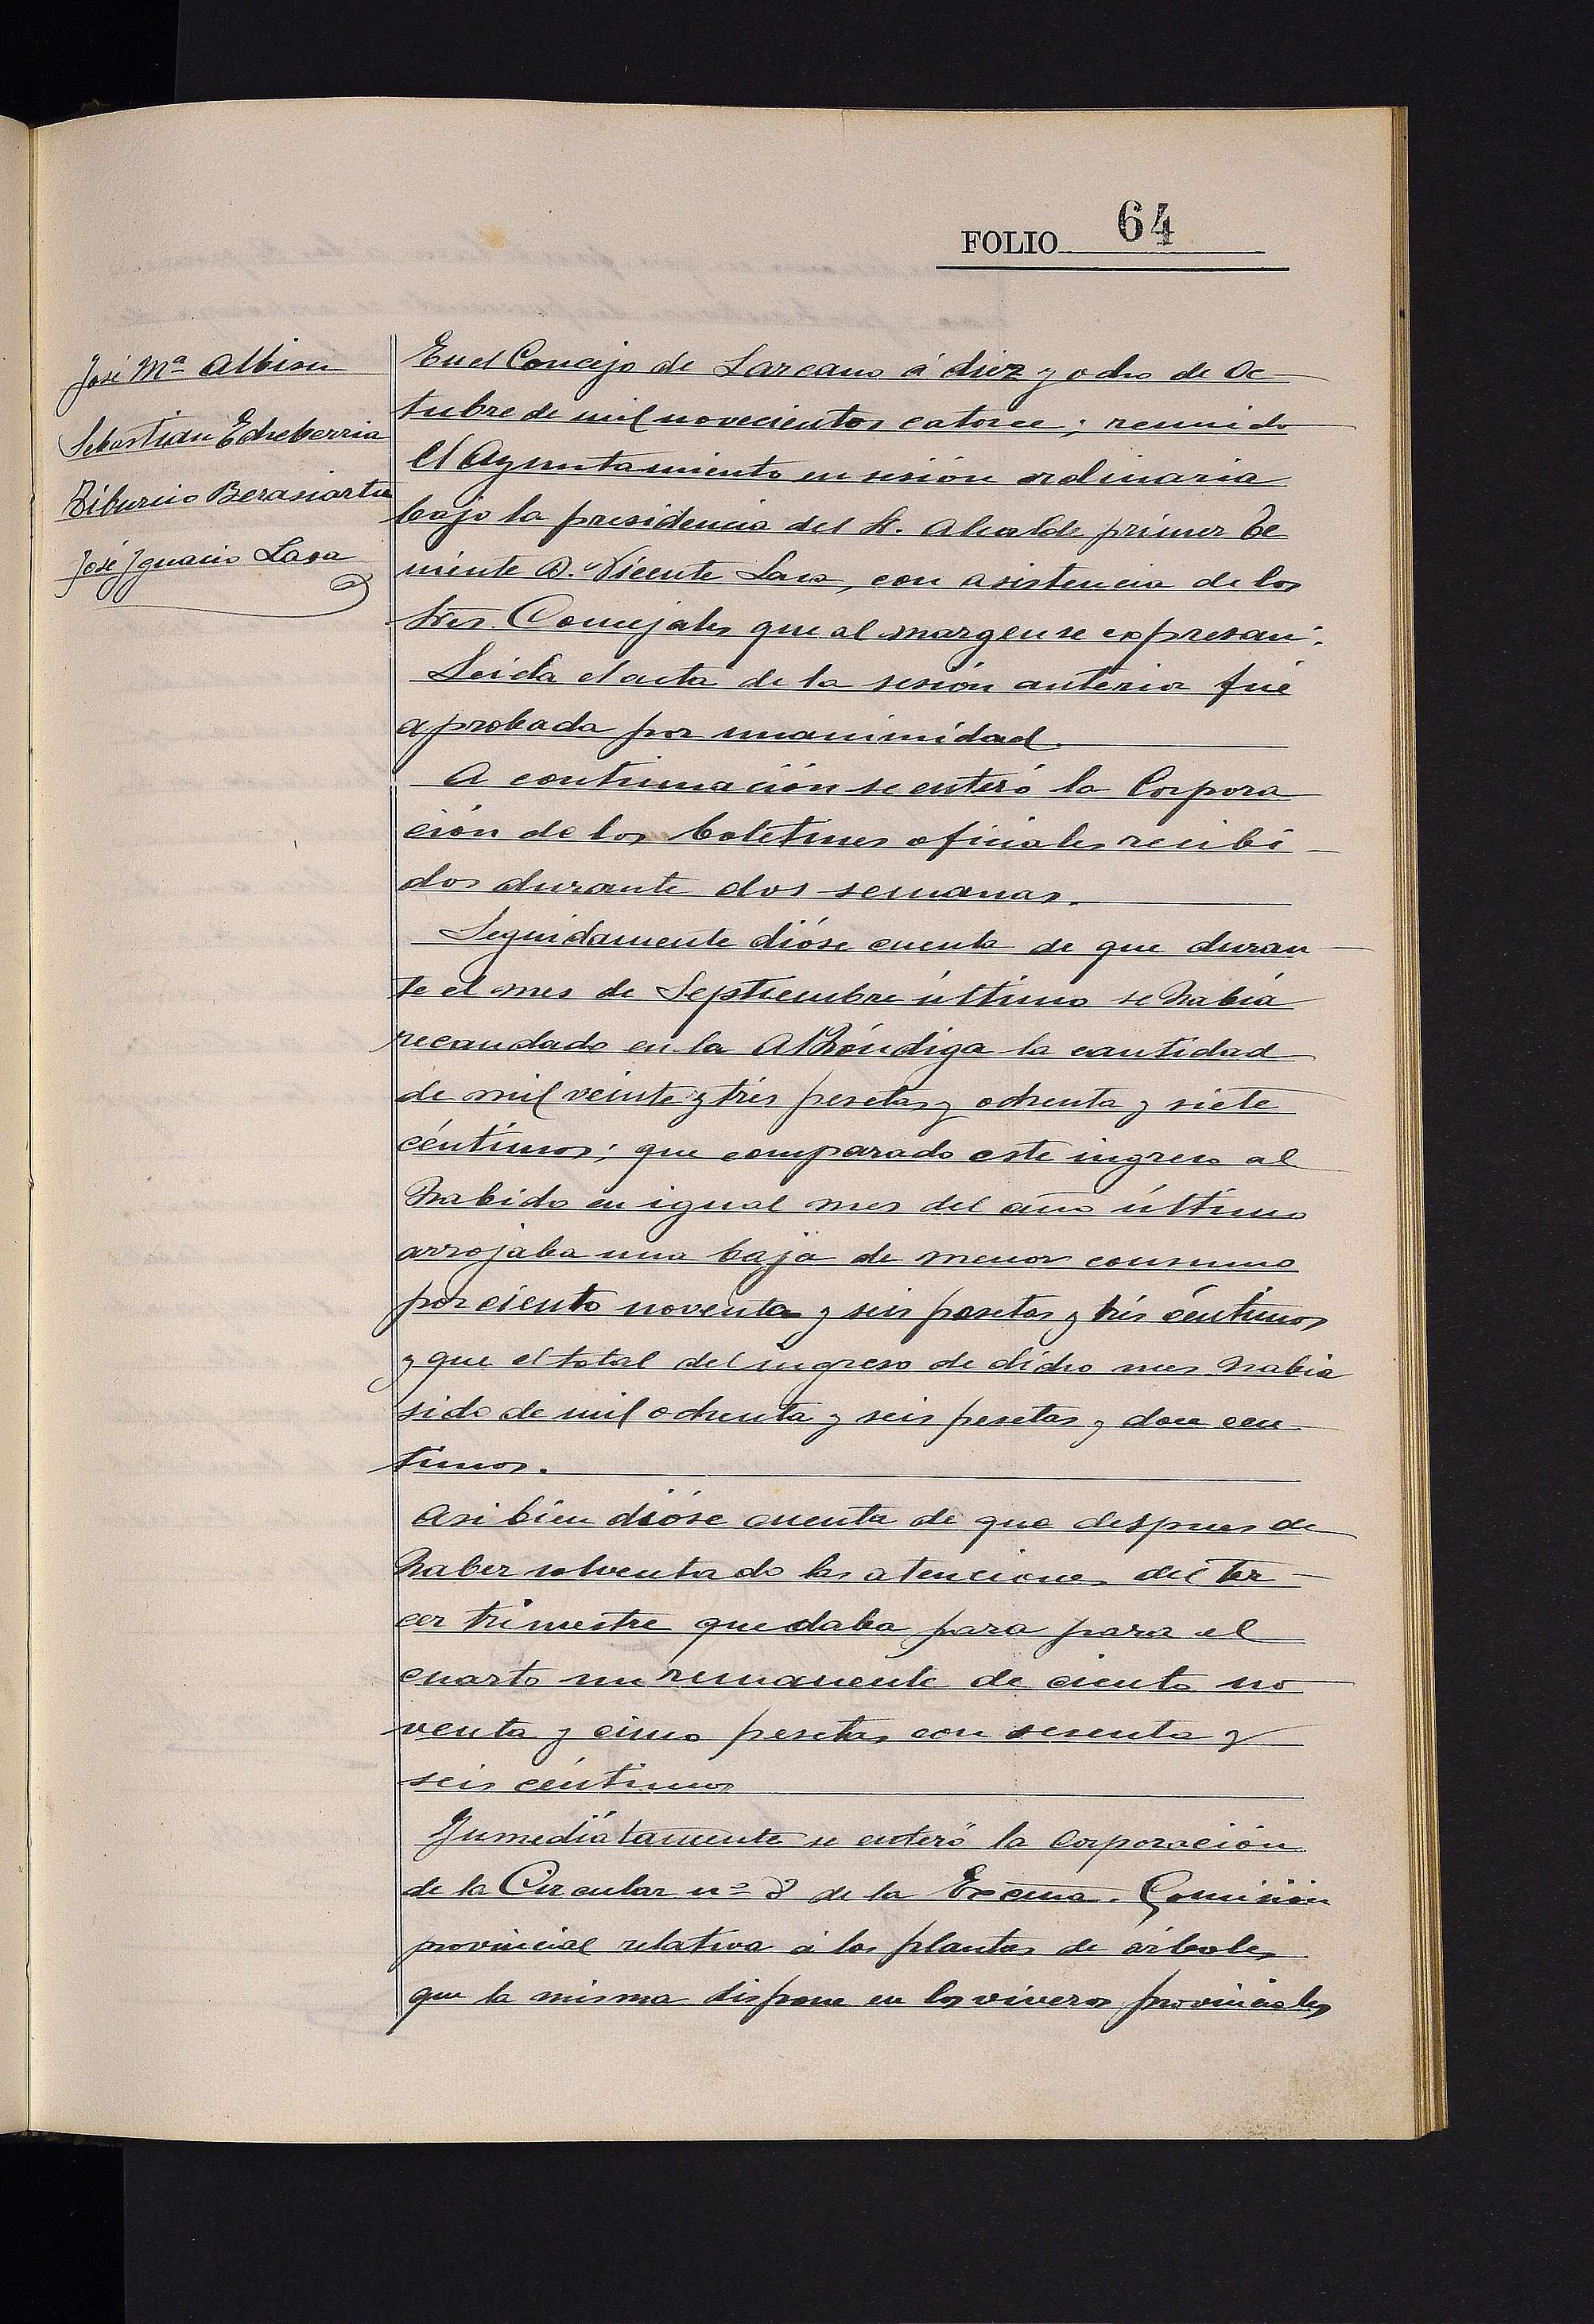 FOLIO 64
José Mª Albisu
Sebastian Echeberria
Tiburcio Berasiartu
José Ignacio Lasa
En el Concejo de Lazcano á diez y ocho de Oc
tubre de mil novecientos catorce; reunido
el Ayuntamiento en sesión ordinaria
bajo la presidencia del Sr. Alcalde primer Te
niente D. Vicente Lasa, con asistencia de los
Sres. Concejales que al margen se expresan:
Leida el acta de la sesión anterior fué
aprobada por unanimidad.
A continuación se enteró la Corpora
ción de los boletines oficiales recibi
dos durante dos semanas.
Seguidamente dióse cuenta de que duran
te el mes de Septiembre último se habia
recaudado en la Alhóndiga la cantidad
de mil veinte y tres pesetas y ochenta y siete
céntimos; que comparado este ingreso al
habido en igual mes del año último
arrojaba una baja de menor consumo
por ciento noventa y seis pesetas y tres céntimos
y que el total del ingreso de dicho mes habia
sido de mil ochenta y seis pesetas y doce cen
timos.
Asi bien dióse cuenta de que despues de
haber solventado las atenciones del ter
cer trimestre quedaba para para el
cuarto un remanente de ciento no
venta y cinco pesetas con sesenta y
seis céntimos
Inmediatamente se enteró la Corporación
de la Circular nº 8 de la Excma. Comisión
provincial relativa á las plantas de árboles
que la misma dispone en los viveros provinciales